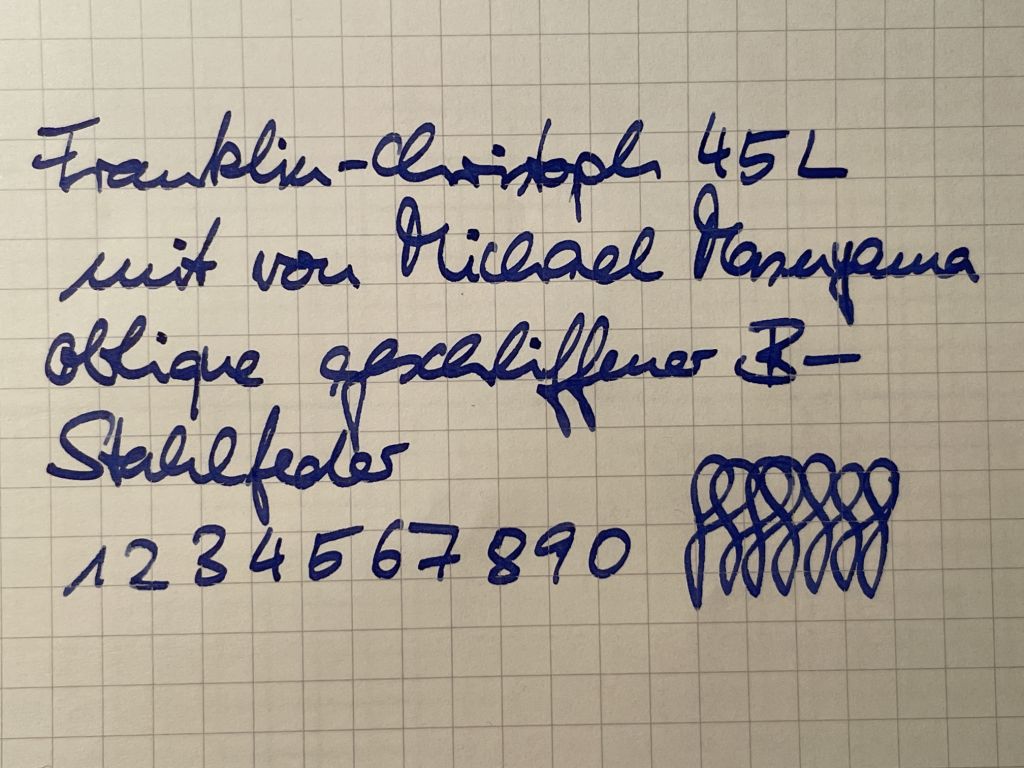 Franklin-Christoph 45L
mit von Michael Masuyama
oblique geschliffener B-
Stahlfeder
1234567890